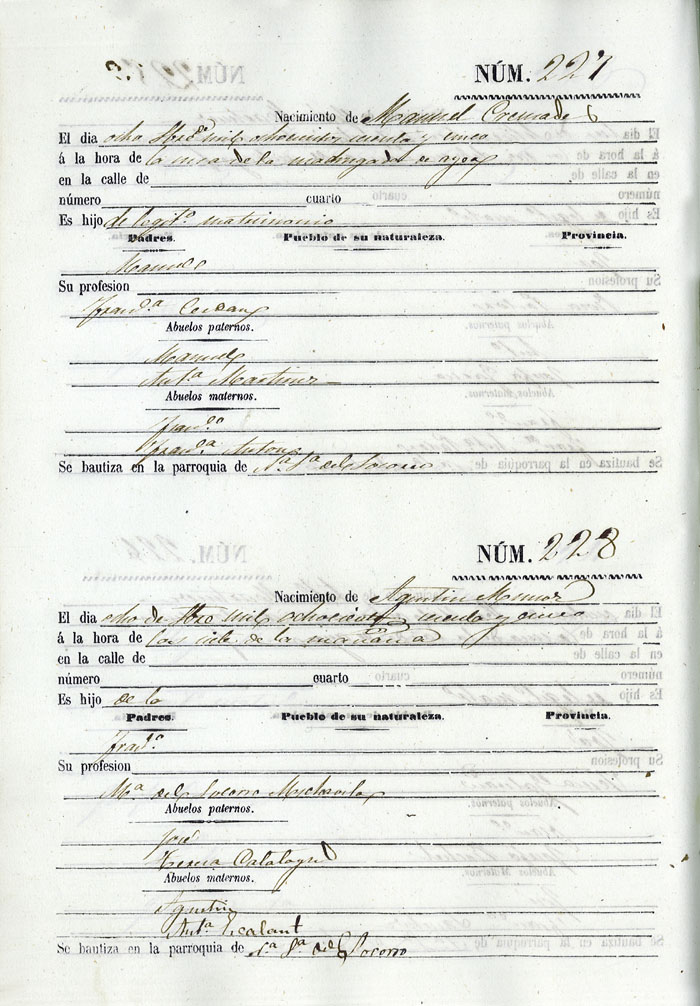 NÚM. 227
Nacimiento de Manuel Cremades
El dia ocho Sbre mil ochocientos sesenta y cinco
á la hora de la una de la madrugada de ayer
en la calle de
número cuarto
Es hijo de legit.o matrimonio
Padres. Pueblo de su naturaleza. Provincia.
Manuel
Su profesion
Fran.ca
Abuelos paternos.
Manuel
Ant.a Martinez
Abuelos maternos.
Fran.co
Fran.ca Anton
Se bautiza en la parroquia de N.a S.a del Socorro
NÚM. 228
Nacimiento de Agustin
El dia ocho de Sbro mil ochocientos sesenta y cinco
á la hora de las siete de la mañana
en la calle de
número cuarto
Es hijo de
Padres. Pueblo de su naturaleza. Provincia.
Fran.co
Su profesion
M.a del Socorro
Abuelos paternos.
José
Teresa Calatayud
Abuelos maternos.
Agustin
Ant.a Escalant
Se bautiza en la parroquia de N.a S.a del Socorro